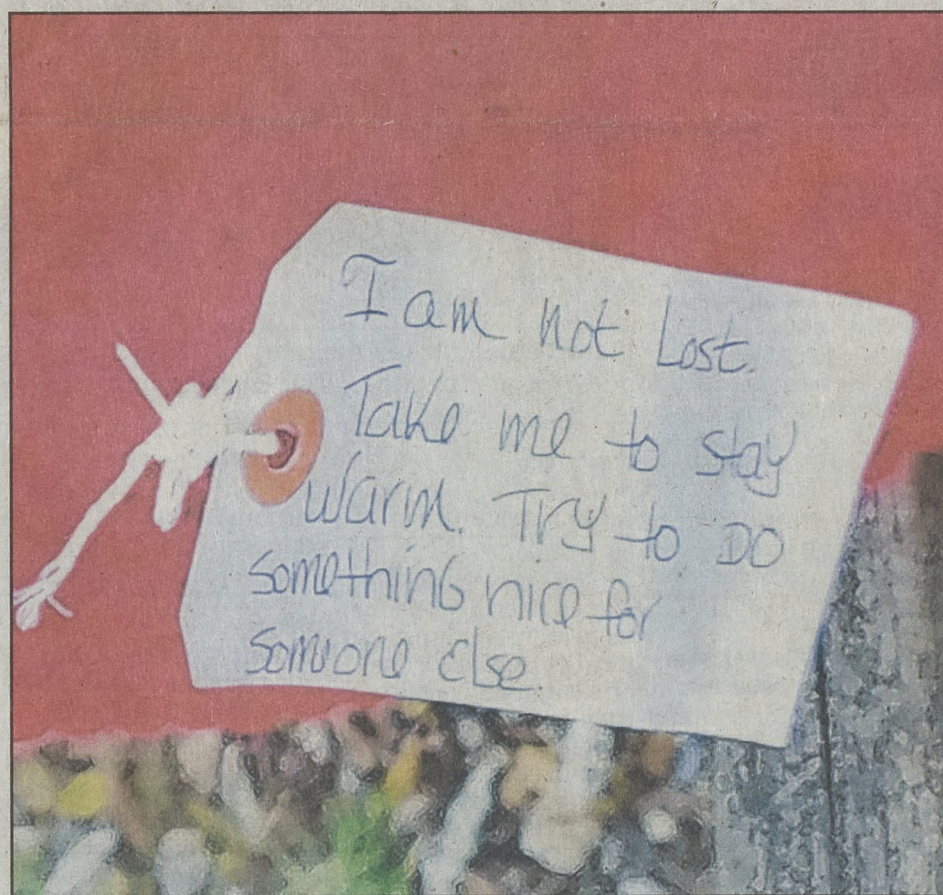 I am not Lost.
Take me to stay
warm. Try to DO
something nice for
someone else.